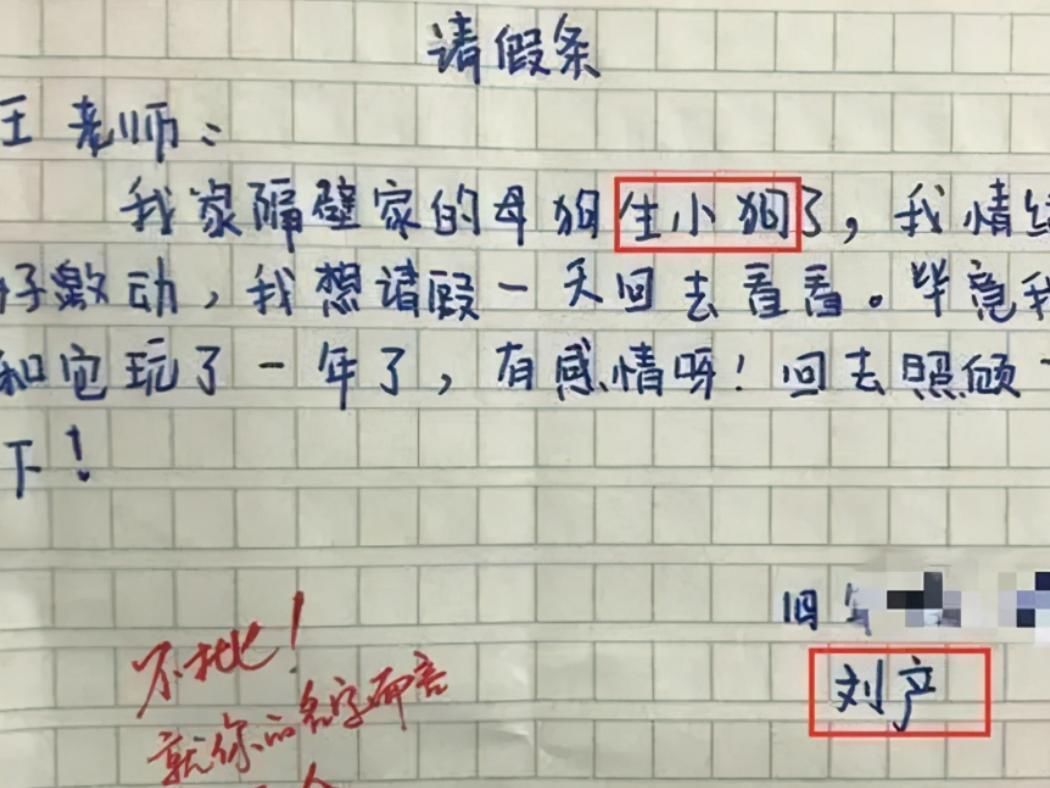 请假条
王老师:
我家隔壁家的母狗生小狗了,我情绪
好激动,我想请假一天回去看看。毕竟我
和它玩了一年了,有感情呀!回去照顾一
下!
四年
刘产
不批!
就你的名字而言
人